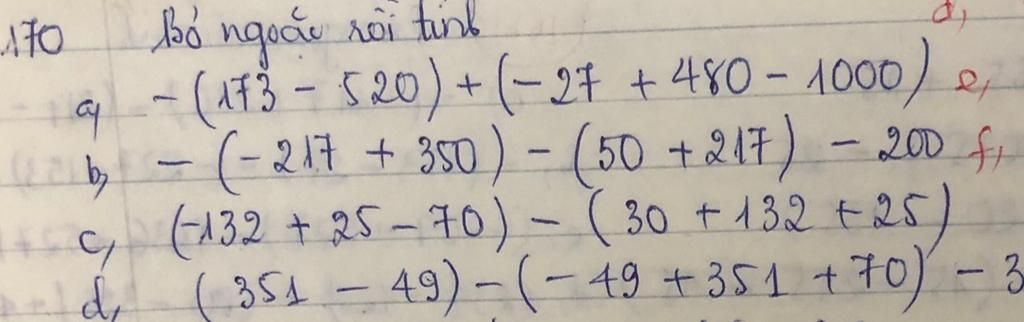 170 Bỏ ngoặc rồi tính d,
a, -(173 - 520) + (-27 + 480 - 1000) e,
b, - (-217 + 350) - (50 + 217) - 200 f,
c, (-132 + 25 - 70) - (30 + 132 + 25)
d, (351 - 49) - (-49 + 351 + 70) - 3